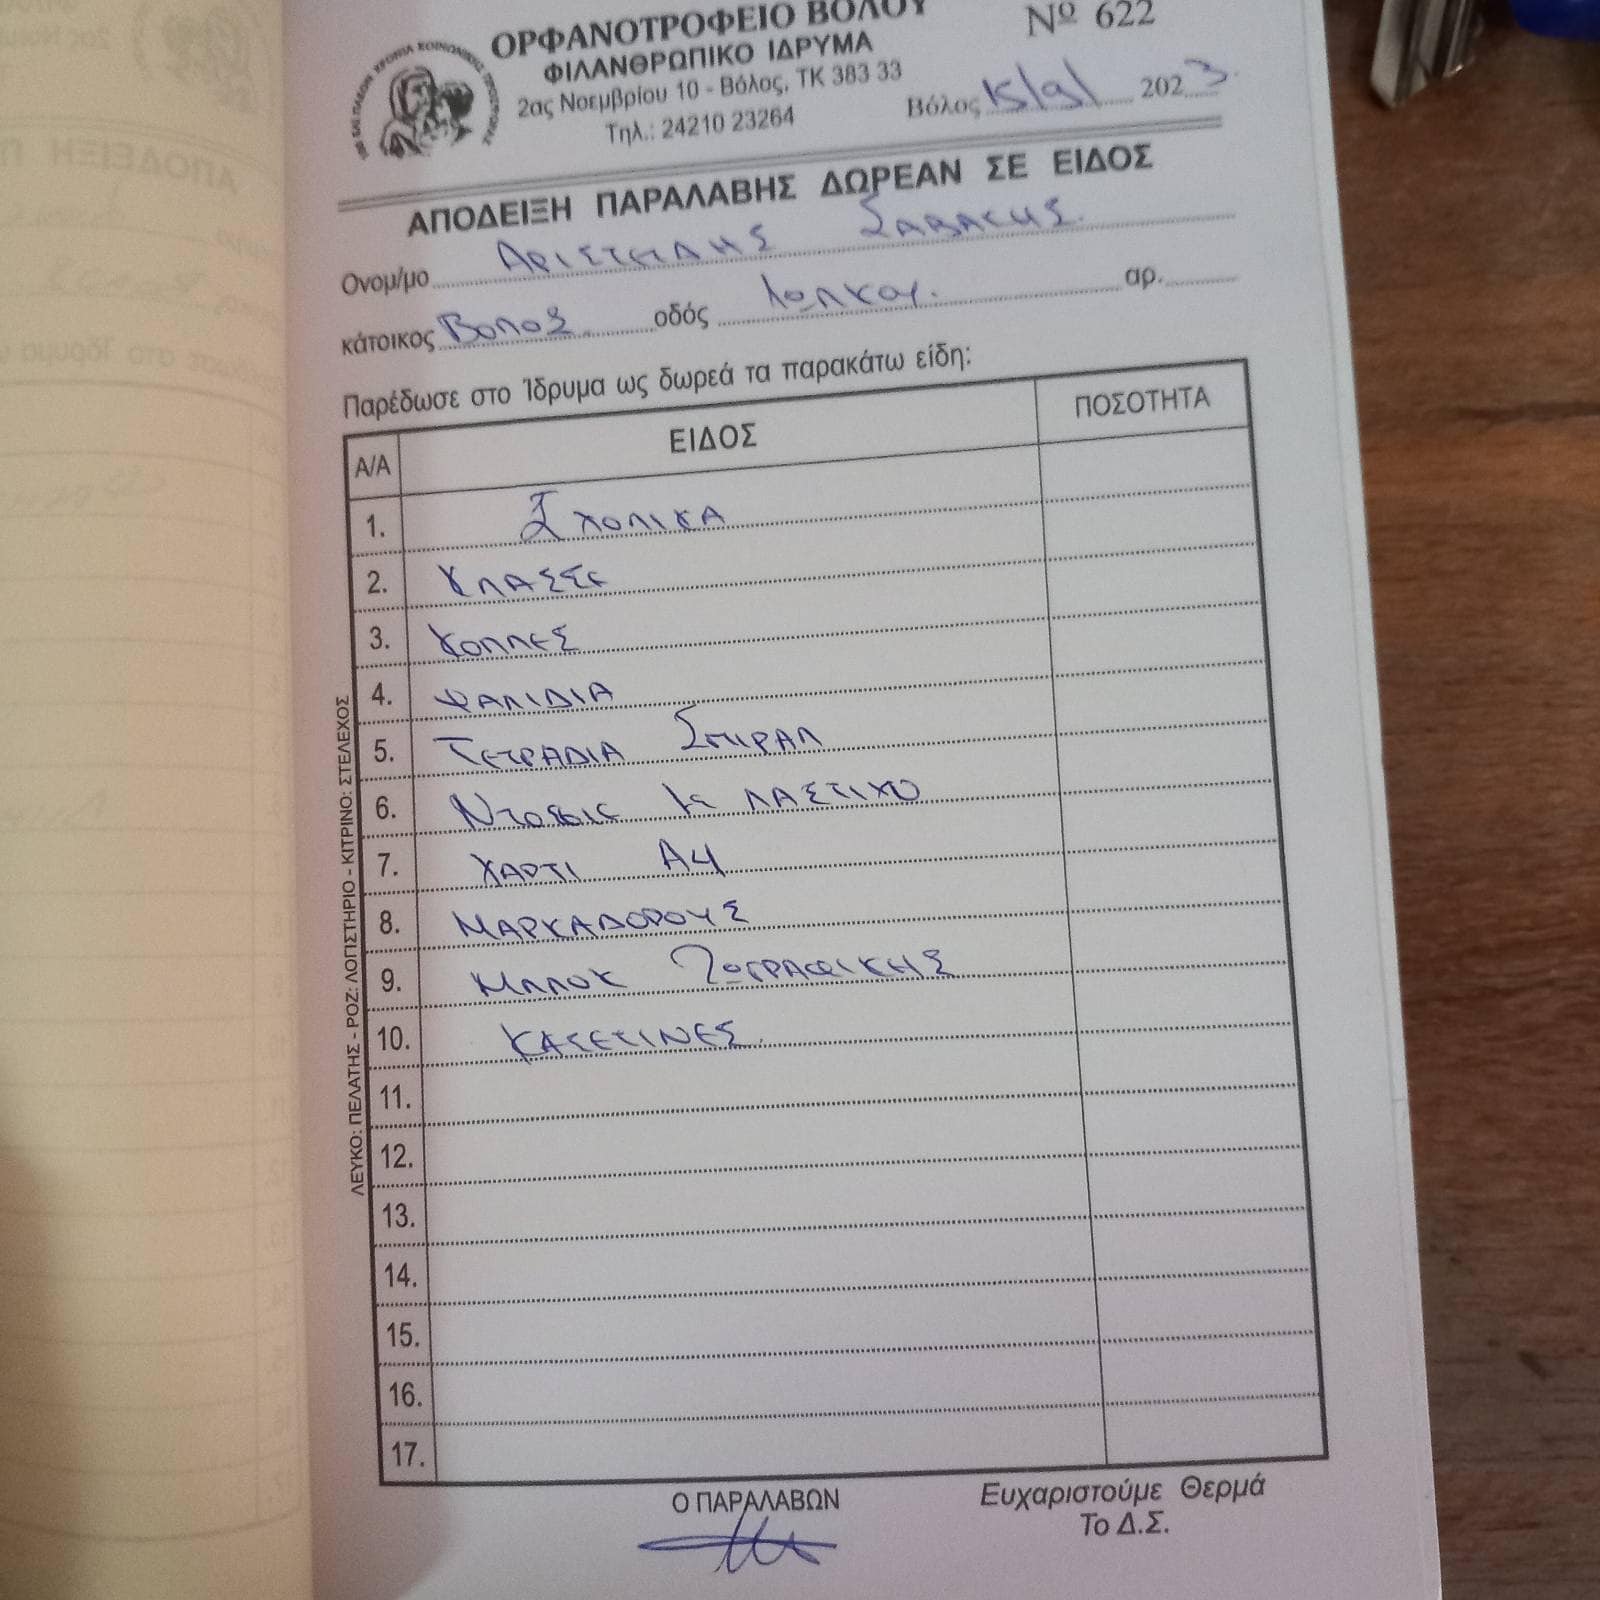 ΟΡΦΑΝΟΤΡΟΦΕΙΟ ΒΟΛΟΥ
ΦΙΛΑΝΘΡΩΠΙΚΟ ΙΔΡΥΜΑ
2ας Νοεμβρίου 10 - Βόλος, ΤΚ 383 33
Τηλ.: 24210 23264
Νº 622
Βόλος 15/9/ 2023
ΑΠΟΔΕΙΞΗ ΠΑΡΑΛΑΒΗΣ ΔΩΡΕΑΝ ΣΕ ΕΙΔΟΣ
Ονομ/μο ΑΡΙΣΤΕΙΔΗΣ
κάτοικος ΒΟΛΟΣ οδός αρ.
Παρέδωσε στο Ίδρυμα ως δωρεά τα παρακάτω είδη:
Α/Α ΕΙΔΟΣ ΠΟΣΟΤΗΤΑ
1. ΣΧΟΛΙΚΑ
2. ΚΛΑΣΣΕ
3. ΚΟΛΛΕΣ
4. ΨΑΛΙΔΙΑ
5. ΤΕΤΡΑΔΙΑ ΣΠΙΡΑΛ
6. ΝΤΟΣΙΕ ΜΕ ΛΑΣΤΙΧΟ
7. ΧΑΡΤΙ Α4
8. ΜΑΡΚΑΔΟΡΟΥΣ
9. ΜΠΛΟΚ ΖΩΓΡΑΦΙΚΗΣ
10. ΚΑΣΕΤΙΝΕΣ.
11.
12.
13.
14.
15.
16.
17.
ΛΕΥΚΟ: ΠΕΛΑΤΗΣ - ΡΟΖ: ΛΟΓΙΣΤΗΡΙΟ - ΚΙΤΡΙΝΟ: ΣΤΕΛΕΧΟΣ
Ο ΠΑΡΑΛΑΒΩΝ
Ευχαριστούμε Θερμά
Το Δ.Σ.